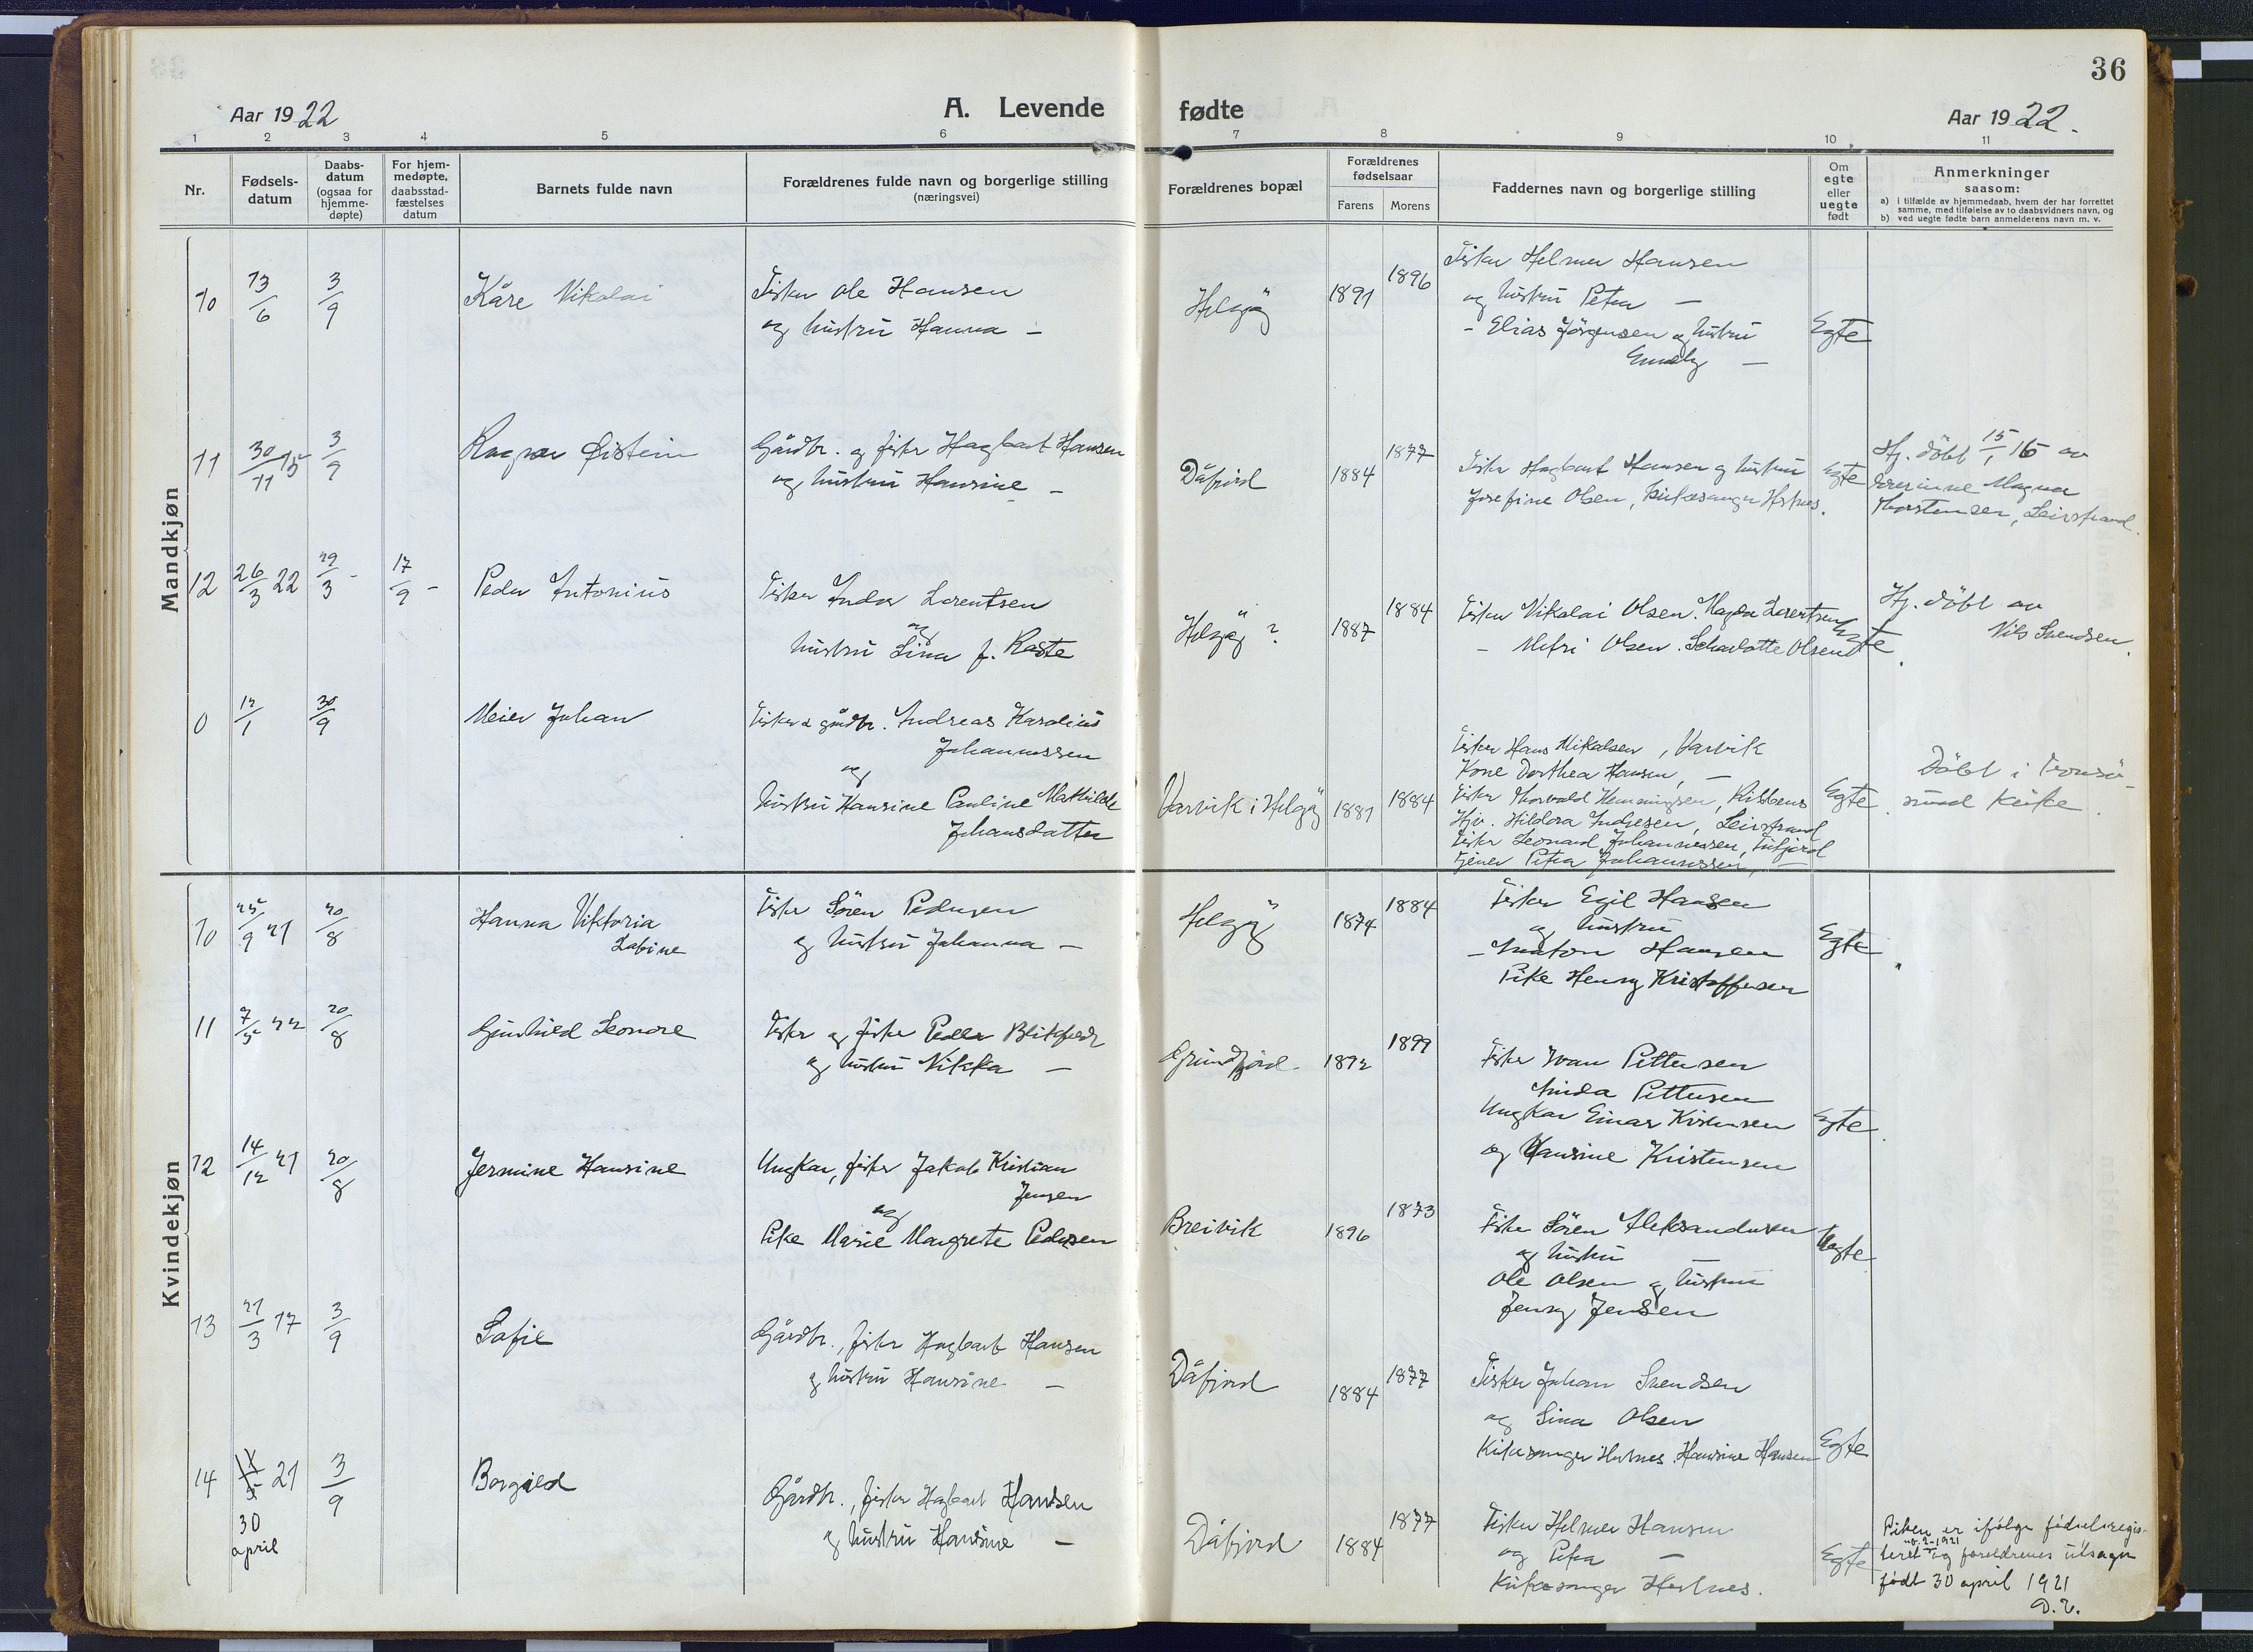 36
Aar 1922
A. Levende
fødte
Aar 1922.
1 2 3 4 5 6 7 8 9 10 11
Nr.
Fødsels-
datum
Daabs-
datum
(ogsaa for
hjemme-
døpte)
For hjem-
medøpte,
daabsstad-
fæstelses
datum
Barnets fulde navn
Forældrenes fulde navn og borgerlige stilling
(næringsvei)
Forældrenes bopæl
Forældrenes
fødselsaar
Farens Morens
Faddernes navn og borgerlige stilling
Om
egte
eller
uegte
født
Anmerkninger
saasom:
a) i tilfælde av hjemmedaab, hvem der har forrettet
samme, med tilføielse av to daabsvidners navn, og
b) ved uegte fødte barn anmelderens navn m. v.
Mandkjøn
10 13/6 3/9 Kåre Nikolai
Fisker Ole Hansen
og hustru Hanna –
Helgøy 1891 1896
Fisker Helmer Hansen
og hustru Petra –
– Elias Jörgensen og hustru
Emely –
Egte
11 30/11 15 3/9 Ragnar Øistein
Gårdbr. og fisker Hagbart Hansen
og hustru Hansine –
Dåfjord 1884 1877
Fisker Hagbart Hansen og hustru
Josefine Olsen, kirkesanger Hstnes.
Egte
Hj. döbt 15/1 16 av
lærerinne Magna
Thorstensen, Leirstrand.
12 26/3 22 29/3 – 17/9 – Peder Antonius
Fisker Indor Lorentsen
og
hustru Lina f. Kaste
Helgøy ? 1887 1884
Fisker Nikolai Olsen. Magda Lorentsen
– Alfri Olsen. Scharlotte Olsen
Egte.
Hj. döbt av
Nils Svendsen.
0 12/1 30/9 Meier Johan
Fisker & gårdbr. Andreas Karolius
Johannessen
og
hustru Hansine Pauline Mathilde
Johansdatter
Varvik i Helgøy 1881 1884
Fisker Hans Mikalsen, Varvik
Kone Dorthea Hansen, –
Fisker Thorvald Henningsen,
Hjv. Hildora Andresen, Leirstrand
Fisker Leonard Johannessen,
tjener Petra Johannessen, –
Egte.
Döbt i Tromsö-
sund Kirke.
Kvindekjøn
10 25/9 21 20/8 Hanna Viktoria
Labine
Fisker Sören Pedersen
og hustru Johanna –
Helgøy 1874 1884
Fisker Egil Hansen
og hustru
– Anton Hansen
Pike Henny Kristoffersen
Egte.
11 7/5 22 20/8 Gunhild Leonore
Fisker og fisker Peder Blikfeldt
og hustru Nikka –
Grundfjord 1892 1899
Fisker Ivan Pettersen
Anida Pettersen
Ungkar Einar Kristensen
og Hansine Kristensen
Egte.
12 14/12 21 20/8 Jermine Hansine
Ungkar, fisker Jakob Kristian
Jensen
og
Pike Marie Margrete Pedersen
Breivik 1896 1873
Fisker Sören Aleksandersen
og hustru –
Ole Olsen og hustru
Jenny Jensen
Uegte
13 21/3 17 3/9 Sofie
Gårdbr., fisker Hagbart Hansen
og hustru Hansine –
Dåfjord 1884 1877
Fisker Johan Svendsen
og Lina Olsen
Kirkesanger Hstnes. Hansine Hansen
Egte
14 21 3/9 Borgild
30
april
Gårdbr., fisker Hagbart Hansen
og hustru Hansine –
Dåfjord 1884 1877
Fisker Helmer Hansen
og Petra –
Kirkesanger Hestnes.
Egte
Piken er ifølge fødselsregis-
teret nr. 2-1921 og foreldrenes utsagn
født 30 april 1921